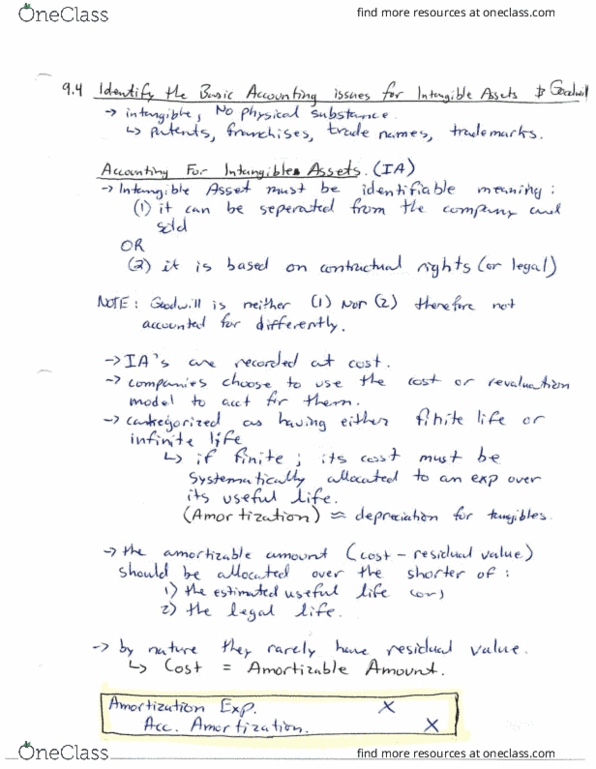 OneClass
find more resources at oneclass.com
9.4 Identify the Basic Accounting issues for Intangible Assets & Goodwill
→ intangible, No physical substance.
↳ patents, franchises, trade names, trademarks.
Accounting For Intangible Assets. (IA)
→ Intangible Asset must be identifiable meaning:
(1) it can be seperated from the company and
sold
OR
(2) it is based on contractual rights (or legal)
NOTE: Goodwill is neither (1) Nor (2) therefore not
accounted for differently.
→ IA's are recorded at cost.
→ companies choose to use the cost or revaluation
model to acct for them.
→ categorized as having either finite life or
infinite life
↳ if finite; its cost must be
systematically allocated to an exp over
its useful life.
(Amortization) ≈ depreciation for tangibles.
→ the amortizable amount (cost - residual value)
should be allocated over the shorter of:
1) the estimated useful life (or)
2) the legal life.
→ by nature they rarely have residual value.
↳ Cost = Amortizable Amount.
Amortization Exp. X
Acc. Amortization. X
OneClass
find more resources at oneclass.com